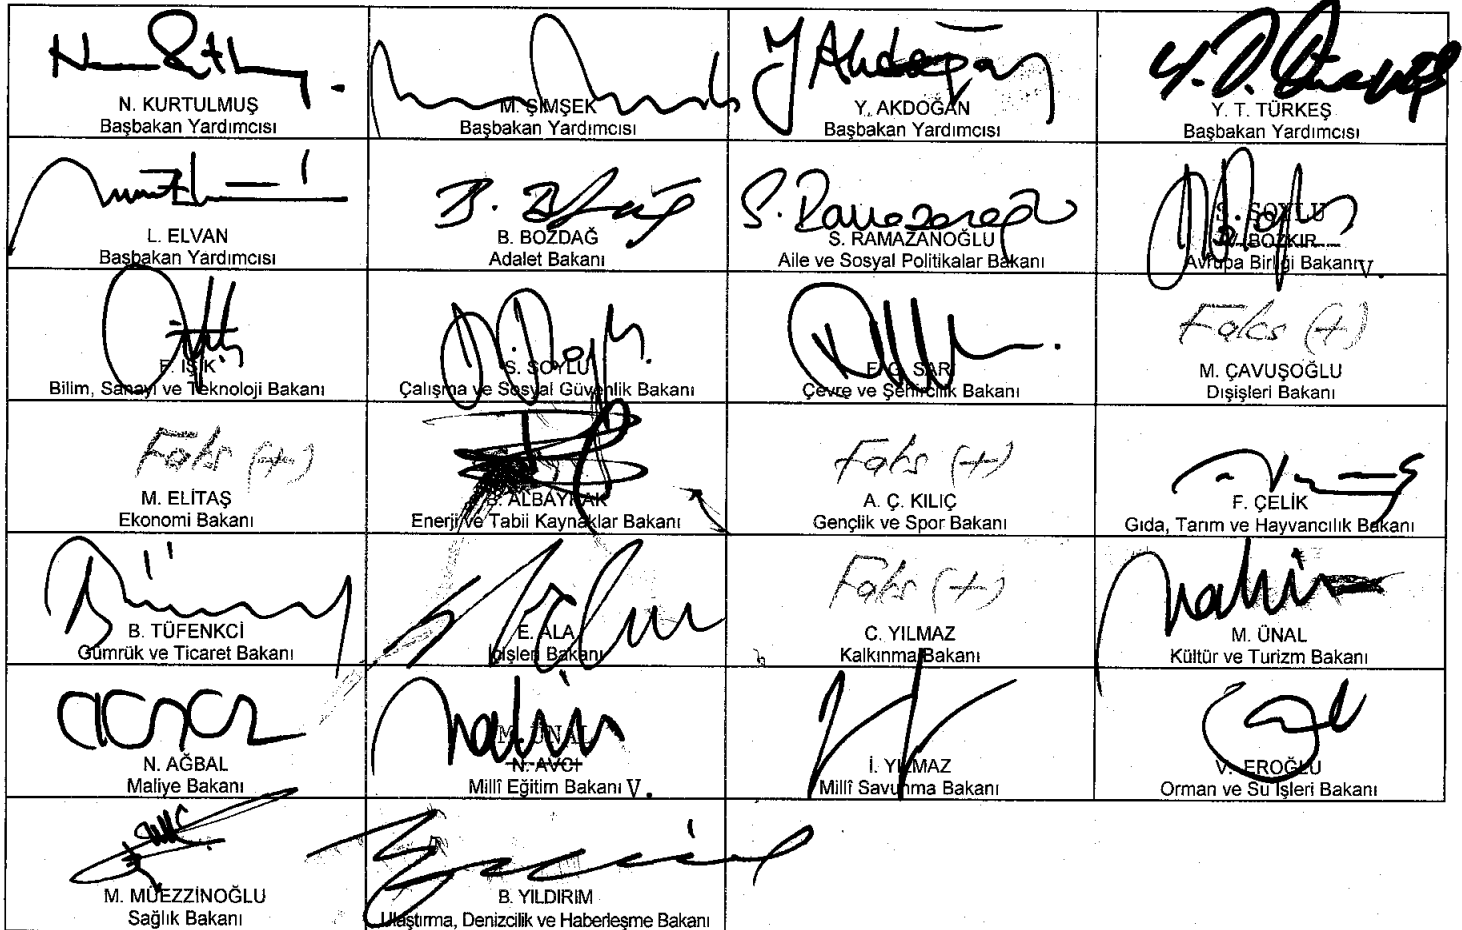 N. KURTULMUŞ
Başbakan Yardımcısı
M. ŞİMŞEK
Başbakan Yardımcısı
Y Akdoğan
Y. AKDOĞAN
Başbakan Yardımcısı
Y. T. TÜRKEŞ
Başbakan Yardımcısı
L. ELVAN
Başbakan Yardımcısı
B. BOZDAĞ
Adalet Bakanı
S. Ramazanoğlu
S. RAMAZANOĞLU
Aile ve Sosyal Politikalar Bakanı
S. SOYLU
V. BOZKIR
Avrupa Birliği Bakanı V.
F. IŞIK
Bilim, Sanayi ve Teknoloji Bakanı
S. SOYLU
Çalışma ve Sosyal Güvenlik Bakanı
F. G. SARI
Çevre ve Şehircilik Bakanı
Faks (+)
M. ÇAVUŞOĞLU
Dışişleri Bakanı
Faks (+)
M. ELİTAŞ
Ekonomi Bakanı
B. ALBAYRAK
Enerji ve Tabii Kaynaklar Bakanı
Faks (+)
A. Ç. KILIÇ
Gençlik ve Spor Bakanı
F. ÇELİK
Gıda, Tarım ve Hayvancılık Bakanı
B. TÜFENKCİ
Gümrük ve Ticaret Bakanı
E. ALA
İçişleri Bakanı
Faks (+)
C. YILMAZ
Kalkınma Bakanı
M. ÜNAL
Kültür ve Turizm Bakanı
N. AĞBAL
Maliye Bakanı
M. ÜNAL
N. AVCI
Millî Eğitim Bakanı V.
İ. YILMAZ
Millî Savunma Bakanı
V. EROĞLU
Orman ve Su İşleri Bakanı
M. MÜEZZİNOĞLU
Sağlık Bakanı
B. YILDIRIM
Ulaştırma, Denizcilik ve Haberleşme Bakanı